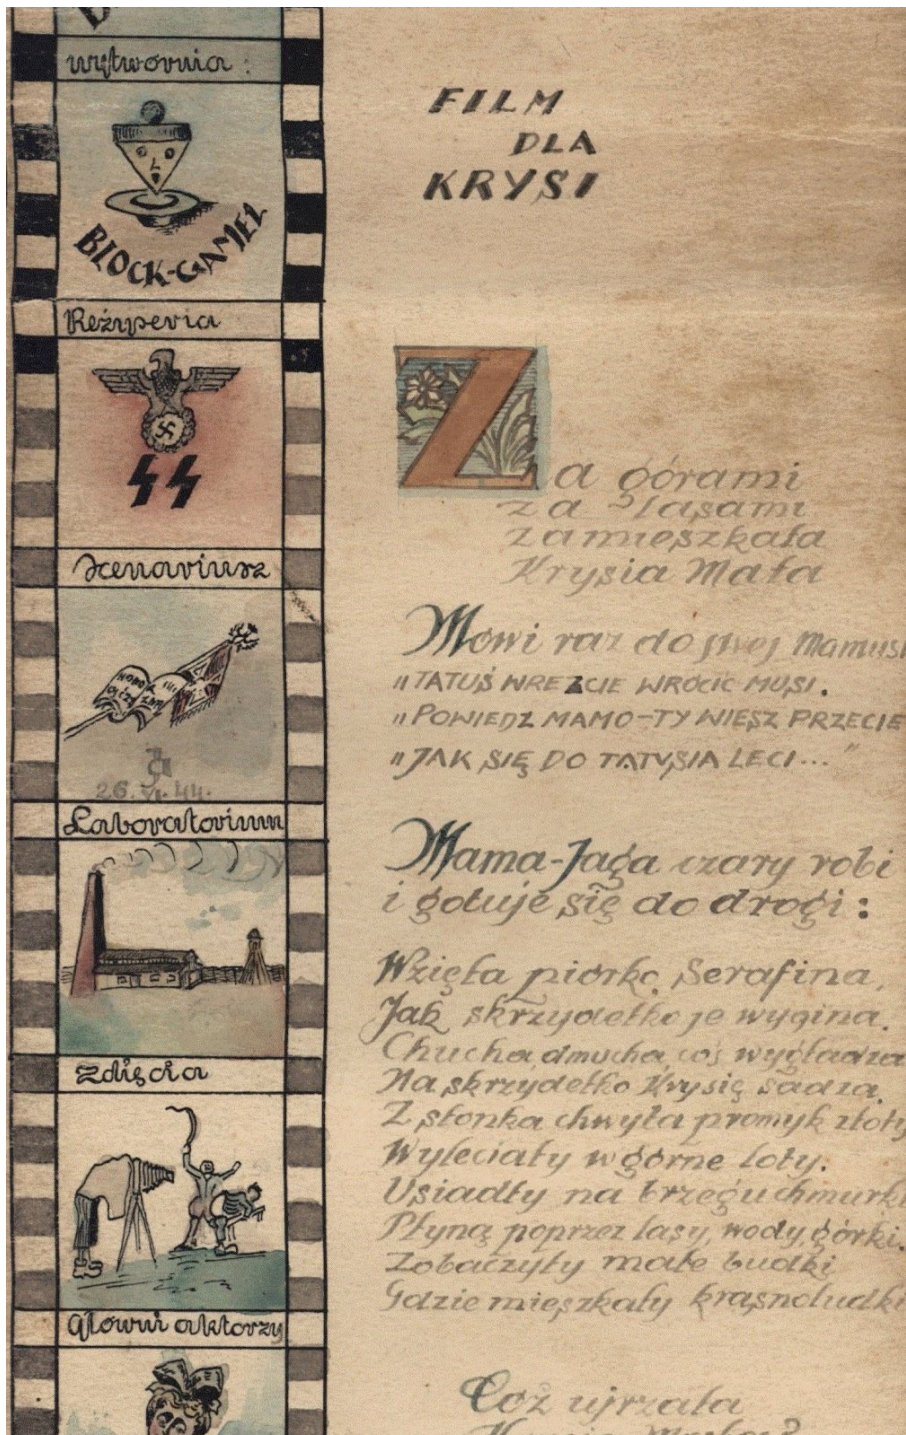 wytwornia:
BLOCK-GAMEL
Reżyseria
Scenariusz
26. VI. 44.
Laboratorium
Zdięcia
Główni aktorzy
FILM
DLA
KRYSI
Za górami
za lasami
zamieszkała
Krysia Mała
Mówi raz do swej Mamusi
"TATUŚ WRESZCIE WRÓCIĆ MUSI.
"POWIEDZ MAMO-TY WIESZ PRZECIE
"JAK SIĘ DO TATUSIA LECI..."
Mama-Jaga czary robi
i gotuje się do drogi:
Wzięła piórko Serafina,
Jak skrzydełko je wygina.
Chucha, dmucha, coś wygładza
Na skrzydełko Krysię sadza.
Z słonka chwyta promyk złoty
Wyleciały w górne loty.
Usiadły na brzegu chmurki
Płyną poprzez lasy, wody, górki.
Zobaczyły małe budki
Gdzie mieszkały krasnoludki
Cóż ujrzała